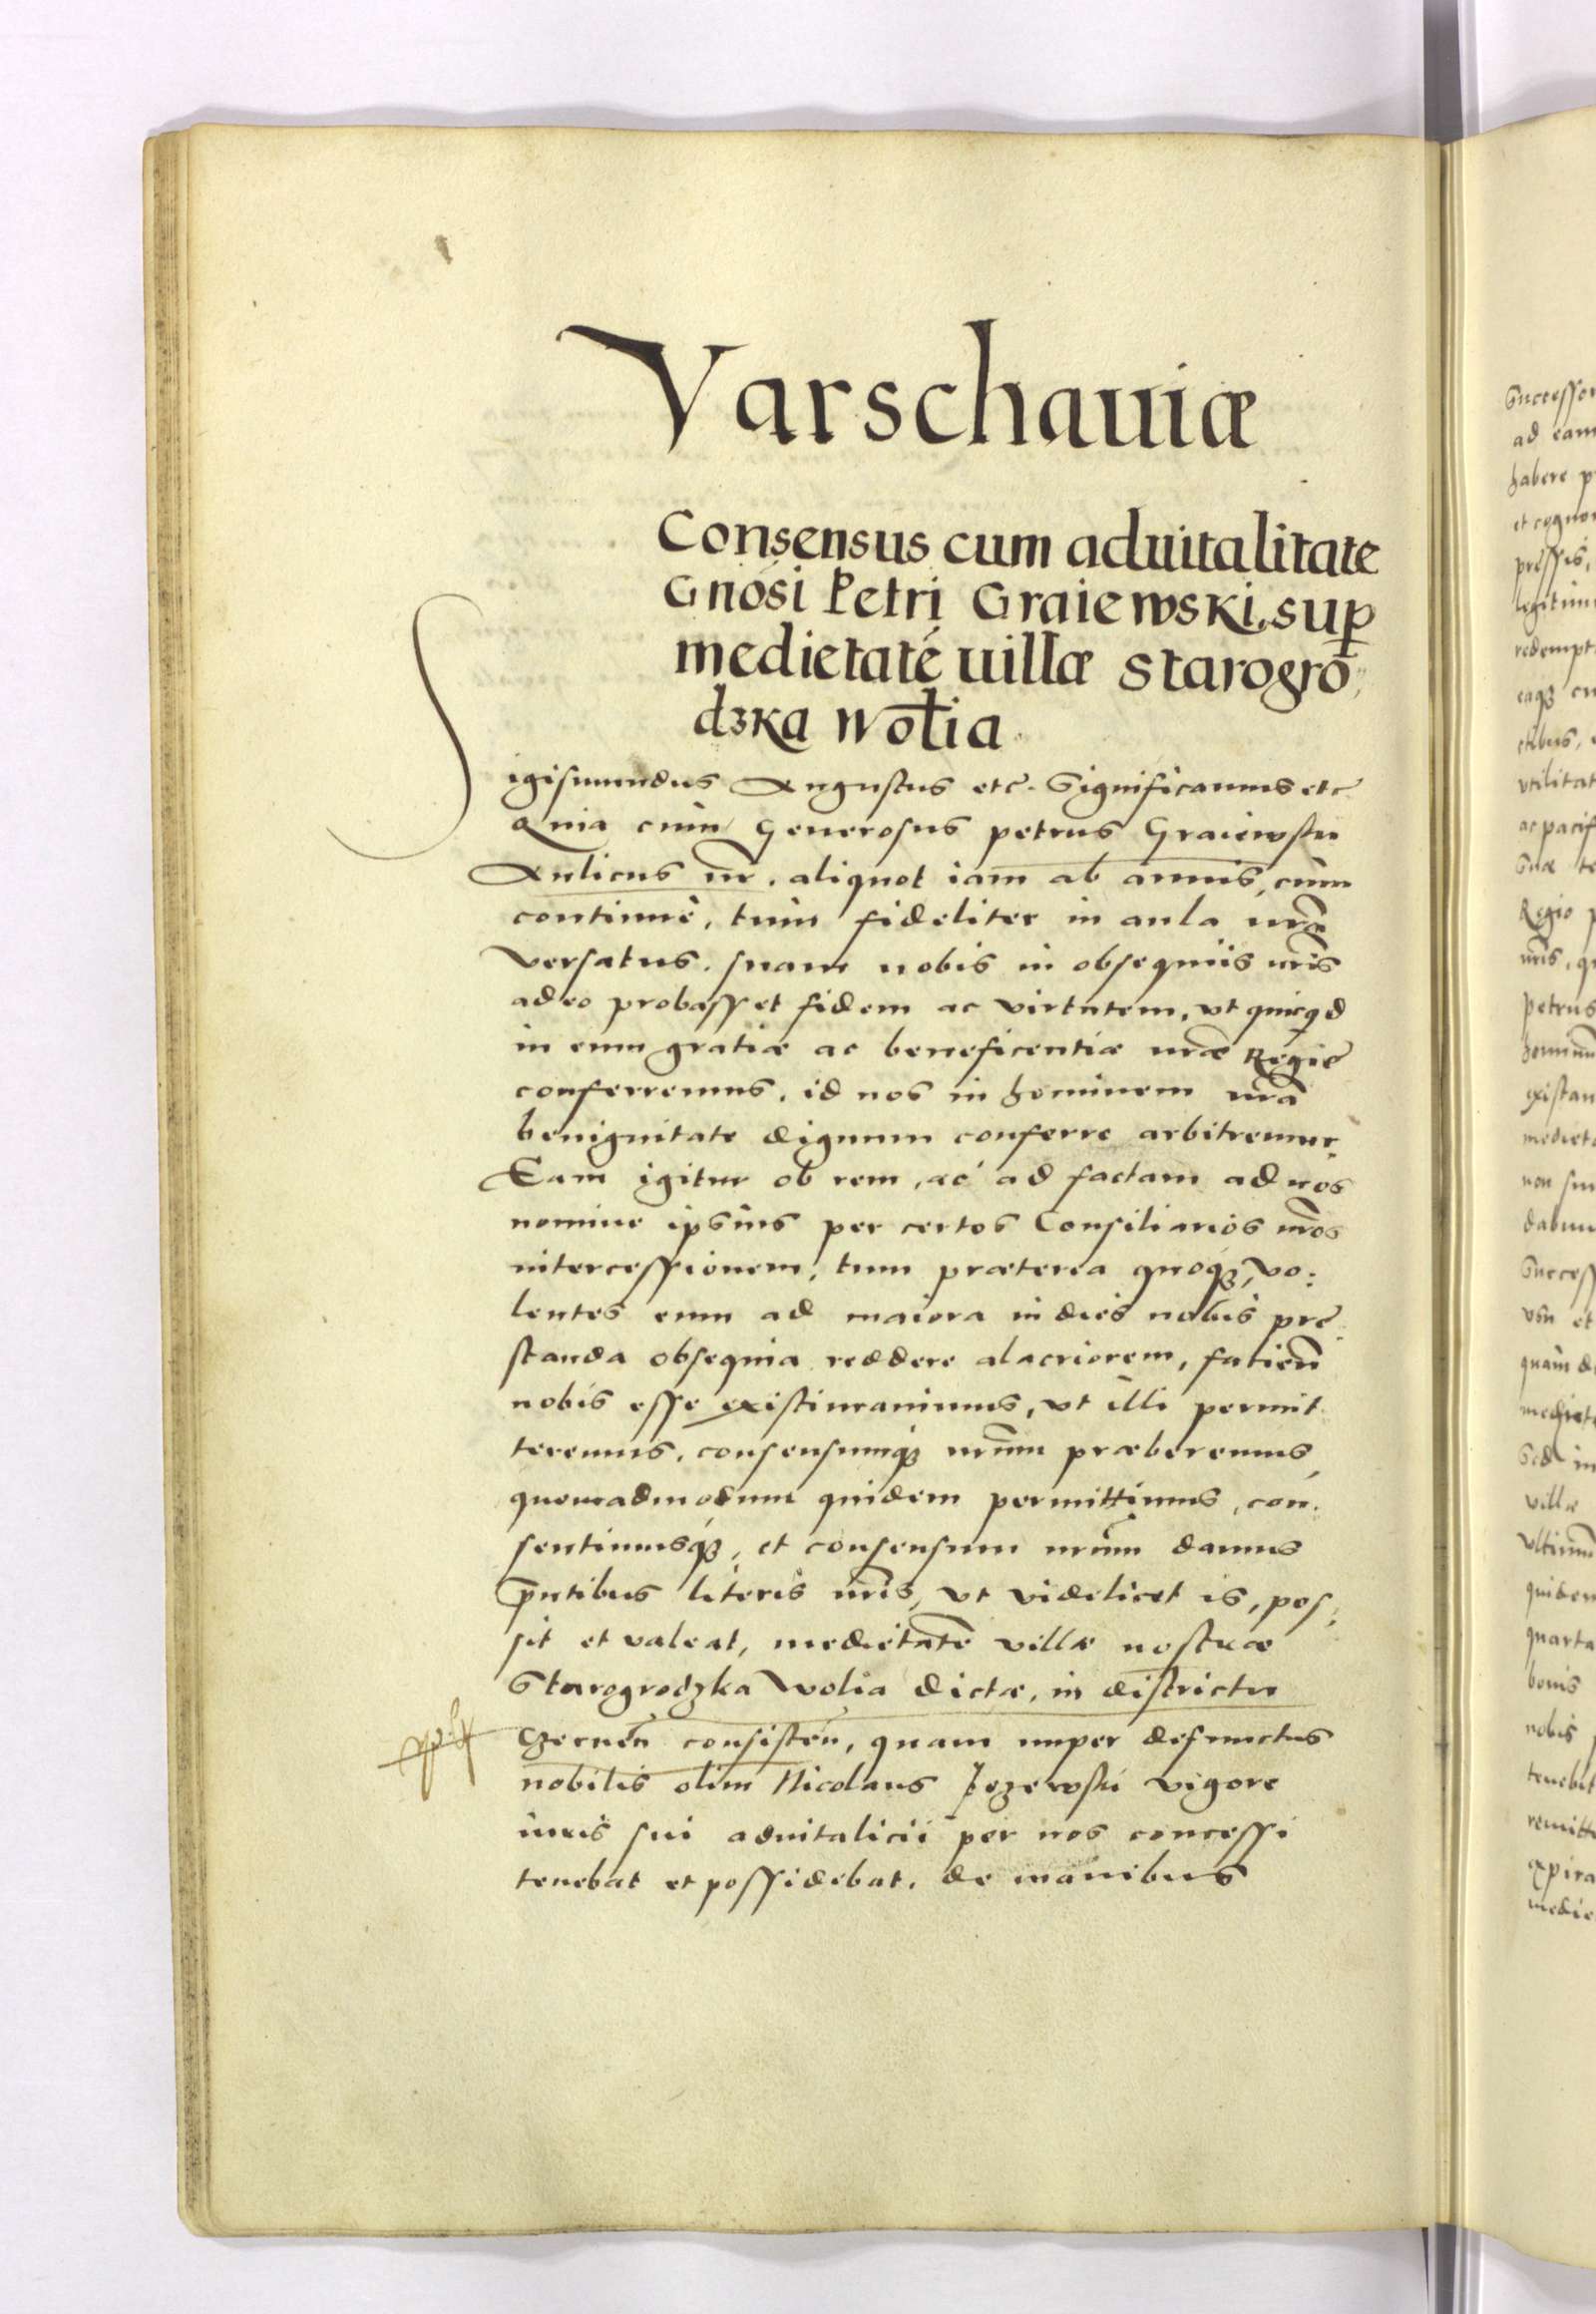 Varschauiæ
Consensus cum aduitalitate
Gnosi Petri Graiewski, sup
medietate uillæ Starogro
dzka Wolia
Sigismundus Augustus etc. Significamus etc
Quia cum Generosus petrus Graiewski
Aulicus nr, aliquot iam ab annis, cum
continuè, tum fideliter in aula nra
versatus, suam nobis in obsequiis nris
adeo probasset fidem ac virtutem, vt quicqd
in eum gratiæ ac beneficentiæ nræ Regie
conferremus, id nos in hominem nra
benignitate dignum conferre arbitremur.
Eam igitur ob rem, ac ad factam ad nos
nomine ipsius per certos Consiliarios nros
intercessionem, tum præterea quoqȝ, vo:
lentes eum ad maiora in dies nobis pre
standa obsequia reddere alacriorem, facien
nobis esse existimauimus, vt illi permit
teremus, consensumqȝ nrum præberemus,
quemadmodum quidem permittimus, con.
sentimusqȝ, et consensum nrum damus
pntibus literis nris, vt videlicet is, pos,
sit et valeat, medietate villæ nostræ
Starogrodzka Wolia dictæ, in districtu
Czernen consisten, quam nuper defunctus
nobilis olim Nicolaus Jezewski vigore
iuris sui aduitalicii per nos concessi
tenebat et possidebat, de manibus
Successor
ad eam
habere p
et cogno
pressis,
legitim
redempt
eaqȝ cu
vtilitat
ac pacif
Suæ te
Regio p
nris, q
petrus
existan
mediet
non su
Success
vsu et
quam d
mediet
Sed in
villæ
quidem
quarta
bonis
nobis
tenebit
remitt
medie